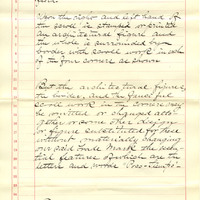 Upon the right and left hand of
the scroll is stamped or printed
an architectural figure and
the whole is surrounded by a
border with scroll work in each
of the four corners as shown
But the architectural figures,
the border, and the fanciful
scroll work in the corners may
be omitted or changed alto-
gether or some other design
or figure substituted for these
without materially changing
our said Trade Mark the essen-
tial features of which are the
letters and words